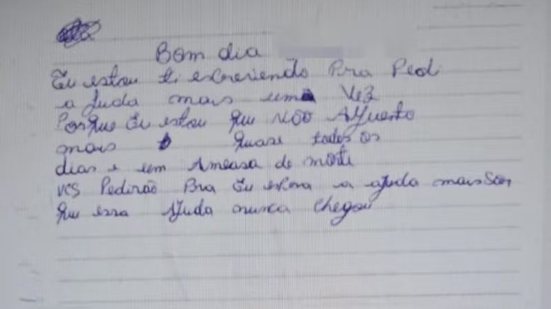 Bom dia
Eu estou te escrevendo Pra Pedi
a Juda mais uma Vez
Porque Eu estou que NÃO Aguento
mais quase todos os
dias e um Ameasa de morte
vcs Pedirão Pra Eu espera a ajuda mais Son
que essa Ajuda nunca chegou